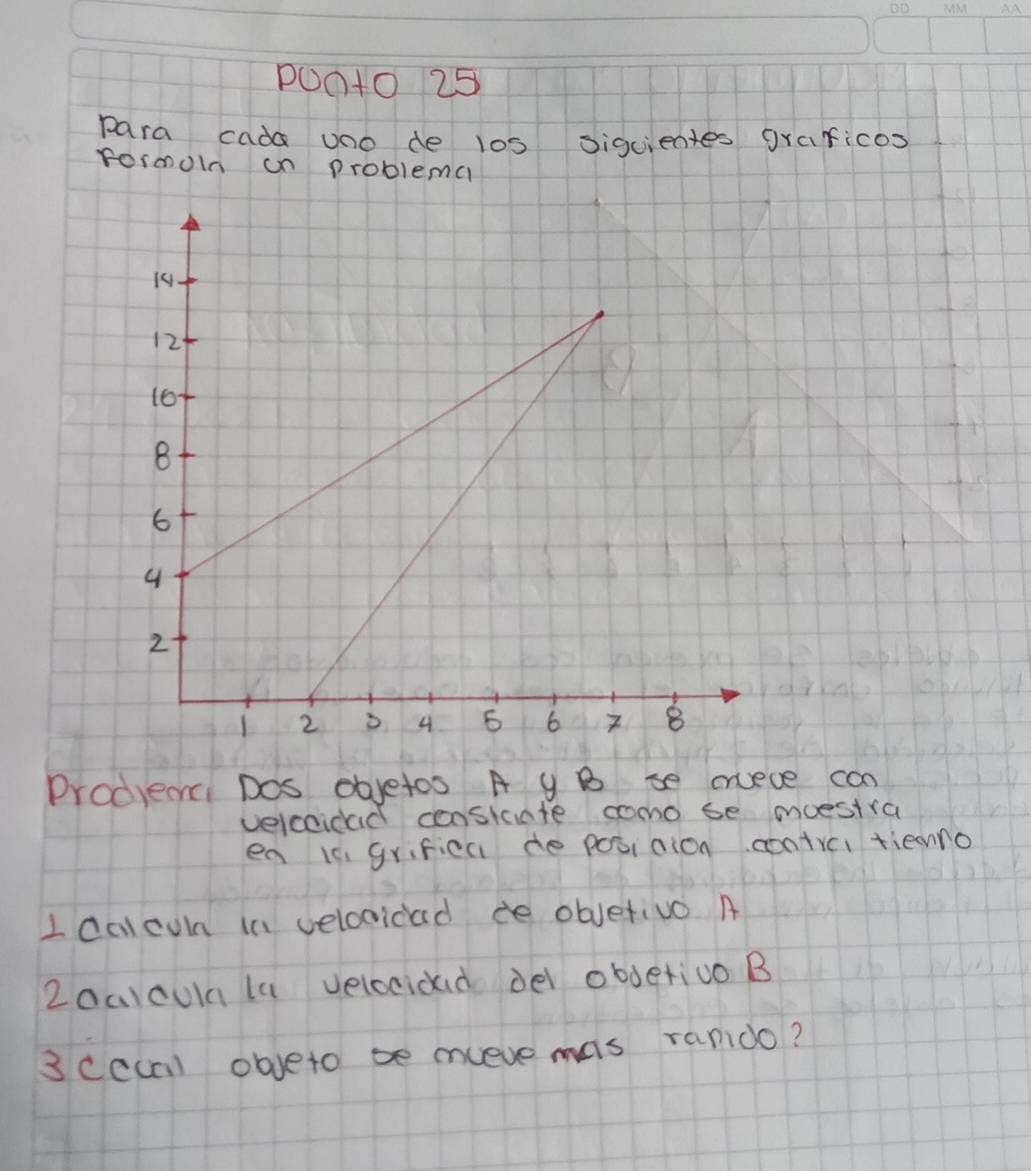 DD MM AA
Punto 25
Para cada uno de los siguientes graficos
formula un problema
14
12
10
8
6
4
2
1 2 3 4 5 6 7 8
Problema Dos objetos A y B se mueve con
velocidad constante como se muestra
en la grifica de posicion contra tiempo
1 Calcula la velocidad de objetivo A
2 calcula la velocidad del objetivo B
3 ccual objeto se mueve mas rapido?